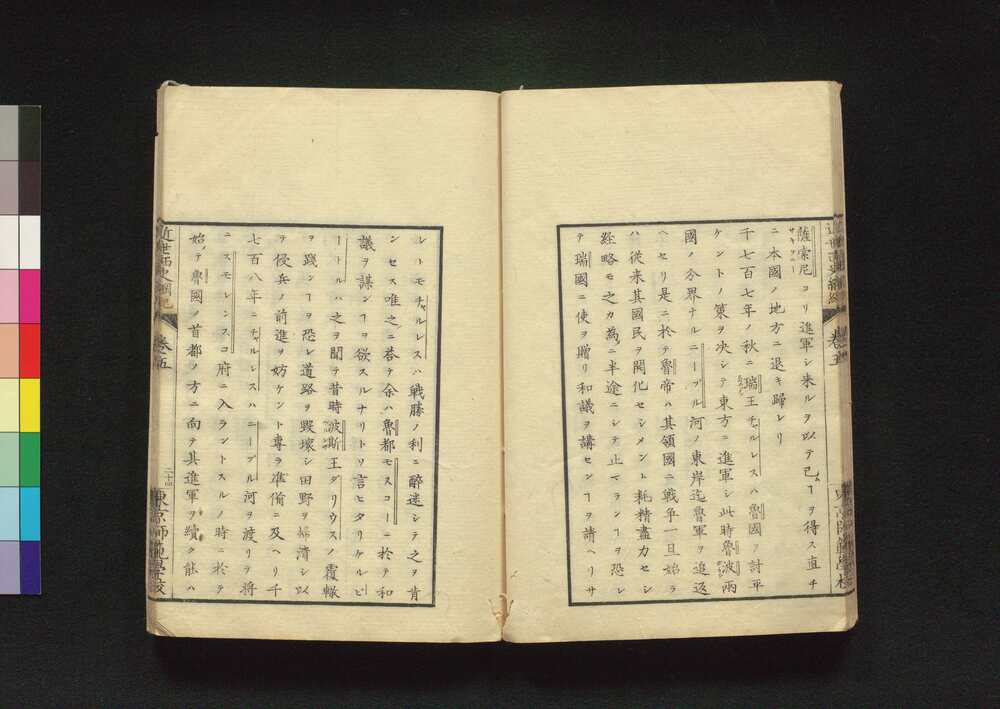 近世西史綱紀 巻五 東京師範學校
薩索尼ヨリ進軍シ来ルヲ以テ已ムヿヲ得ス直チ
サキソニー
ニ本國ノ地方ニ退キ歸レリ
千七百七年ノ秋ニ瑞王チャルレスハ魯國ヲ討平
ケントノ策ヲ决シテ東方ニ進軍シ此時魯波兩
國ノ分界ナルニーブル河ノ東岸迄魯軍ヲ追返
ヘセリ是ニ於テ魯帝ハ其領國ニ戰争一旦始ラ
ハ従来其國民ヲ開化セシメント耗精盡力セシ
経略モ之カ為ニ半途ニシテ止マランヿヲ恐レ
テ瑞國ニ使ヲ贈リ和議ヲ講センヿヲ請ヘリサ
レトモチャルレスハ戦勝ノ利ニ酔迷シテ之ヲ肯
ンセス唯之ニ荅テ余ハ魯都モスコーニ於テ和
議ヲ謀ンヿヲ欲スルナリトソ言ヒタリケルピ
ートルハ之ヲ聞テ昔時波斯王ダリウスノ覆轍
ヲ踐ンヿヲ恐レ道路ヲ毀壞シ田野ヲ掃清シ以
テ侵兵ノ前進ヲ妨ケント專ラ准備ニ及ヘリ千
七百八年ニチャルレスハニーブル河ヲ渡リテ将
ニスモレンスコ府ニ入ラントスルノ時ニ於テ
始テ魯國ノ首都ノ方ニ向テ其進軍ヲ續ク能ハ
近世西史綱紀 巻五 二十四 東京師範學校